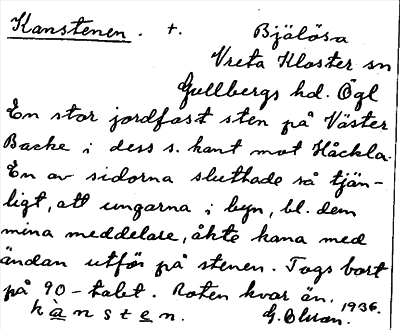 Kanstenen. +. Bjälösa
Vreta Kloster sn
Gullbergs hd. Ögl
En stor jordfast sten på Väster
Backe i dess s. kant mot Håckla.
En av sidorna sluttade så tjän-
ligt, att ungarna i byn, bl. dem
mina meddelare, åkte kana med
ändan utför på stenen. Togs bort
på 90-talet. Roten kvar än.
kànsten. G. Olson. 1936.